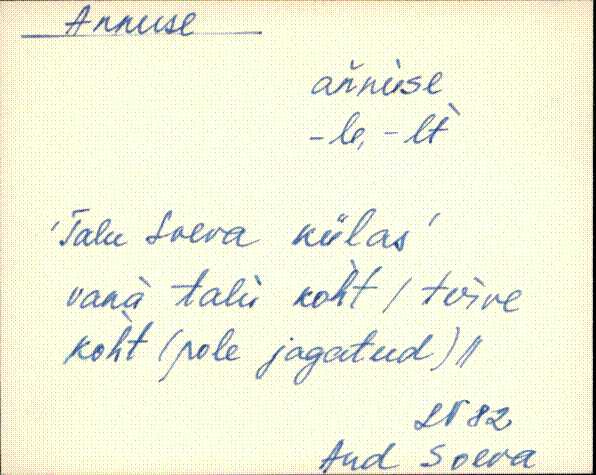 Annuse
ańnùse
-le, -lt̀
'Talu Soeva külas'
vanà talù kòht / terve
kòht (pole jagatud) //
LN 82
Aud Soeva